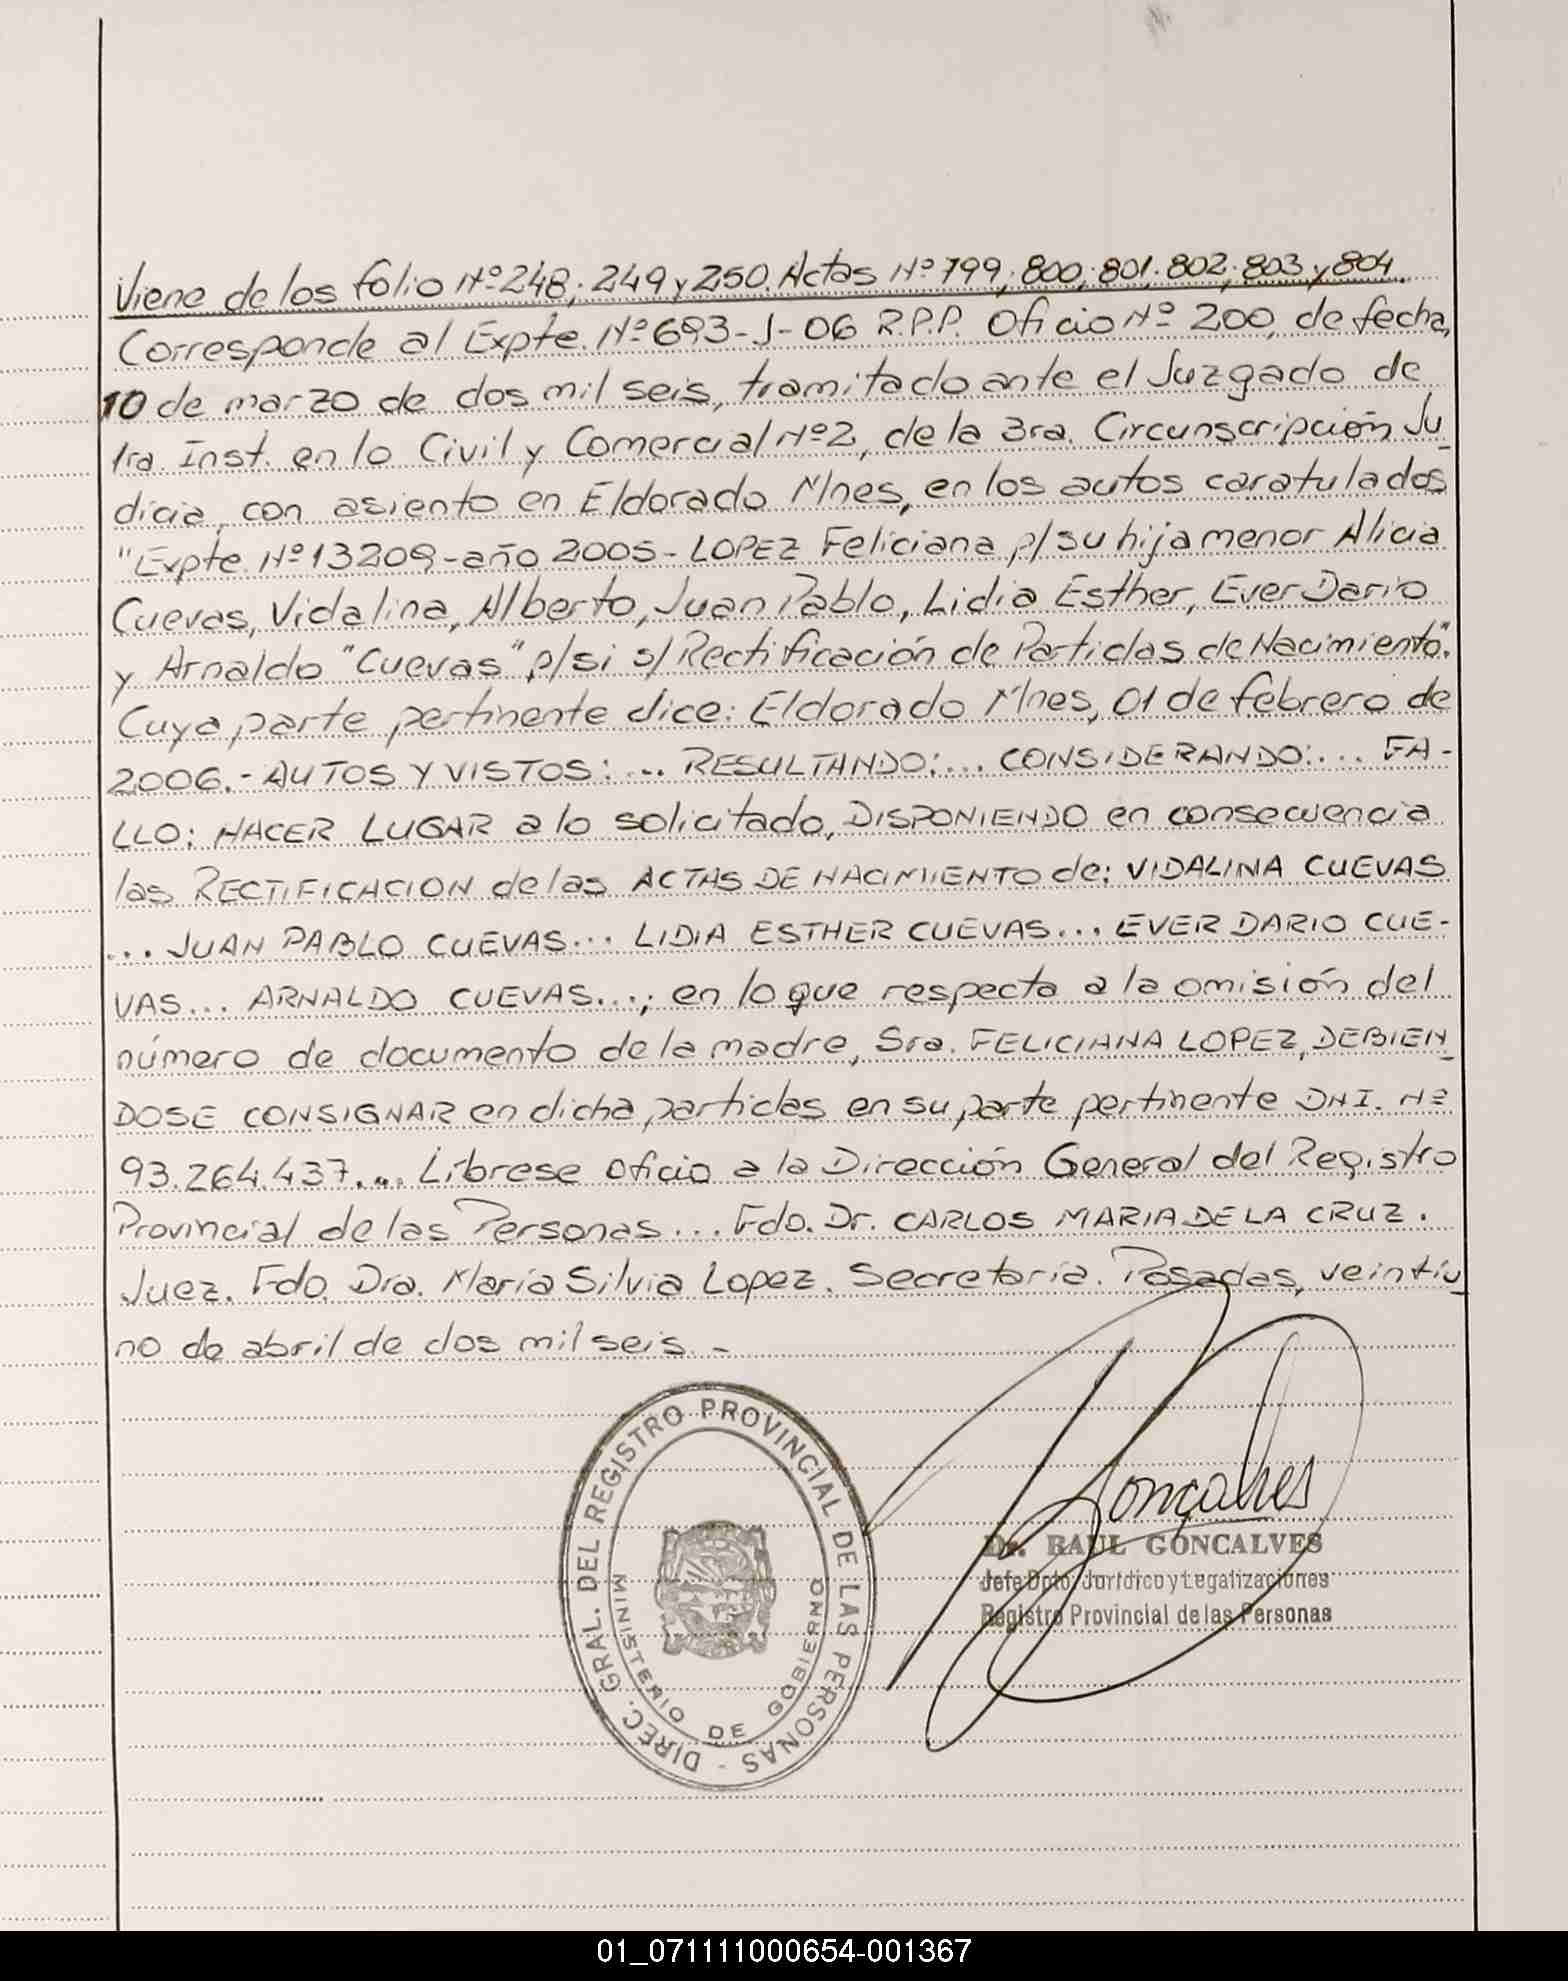 Viene de los folio Nº 248; 249 y 250. Actas Nº 799; 800; 801; 802; 803 y 804.
Corresponde al Expte. Nº 693-J-06 R.P.P. Oficio Nº 200, de fecha,
10 de marzo de dos mil seis, tramitado ante el Juzgado de
1ra. Inst. en lo Civil y Comercial Nº 2, de la 3ra. Circunscripción Ju_
dicia, con asiento en Eldorado Mnes, en los autos caratulados
"Expte. Nº 13209-año 2005- LOPEZ Feliciana p/su hija menor Alicia
Cuevas, Vidalina, Alberto, Juan Pablo, Lidia Esther, Ever Dario
y Arnaldo "Cuevas" p/si s/Rectificación de Partidas de Nacimiento".
Cuya parte pertinente dice: Eldorado Mnes, 01 de febrero de
2006.- AUTOS Y VISTOS: ... RESULTANDO: ... CONSIDERANDO: ... FA-
LLO: HACER LUGAR a lo solicitado, DISPONIENDO en consecuencia
las RECTIFICACION de las ACTAS DE NACIMIENTO de: VIDALINA CUEVAS
... JUAN PABLO CUEVAS... LIDIA ESTHER CUEVAS... EVER DARIO CUE-
VAS... ARNALDO CUEVAS...; en lo que respecta a la omisión del
número de documento de la madre, Sra. FELICIANA LOPEZ, DEBIEN_
DOSE CONSIGNAR en dicha partidas en su parte pertinente DNI. Nº
93.264.437.... Líbrese oficio a la Dirección General del Registro
Provincial de las Personas... Fdo. Dr. CARLOS MARIA DE LA CRUZ.
Juez. Fdo. Dra. María Silvia Lopez. Secretaria. Posadas, veintiu_
no de abril de dos mil seis. -
DIREC. GRAL. DEL REGISTRO PROVINCIAL DE LAS PERSONAS -
MINISTERIO DE GOBIERNO
Gonçalves
Dr. RAUL GONCALVES
Jefe Dpto. Jurídico y Legalizaciones
Registro Provincial de las Personas
01_071111000654-001367